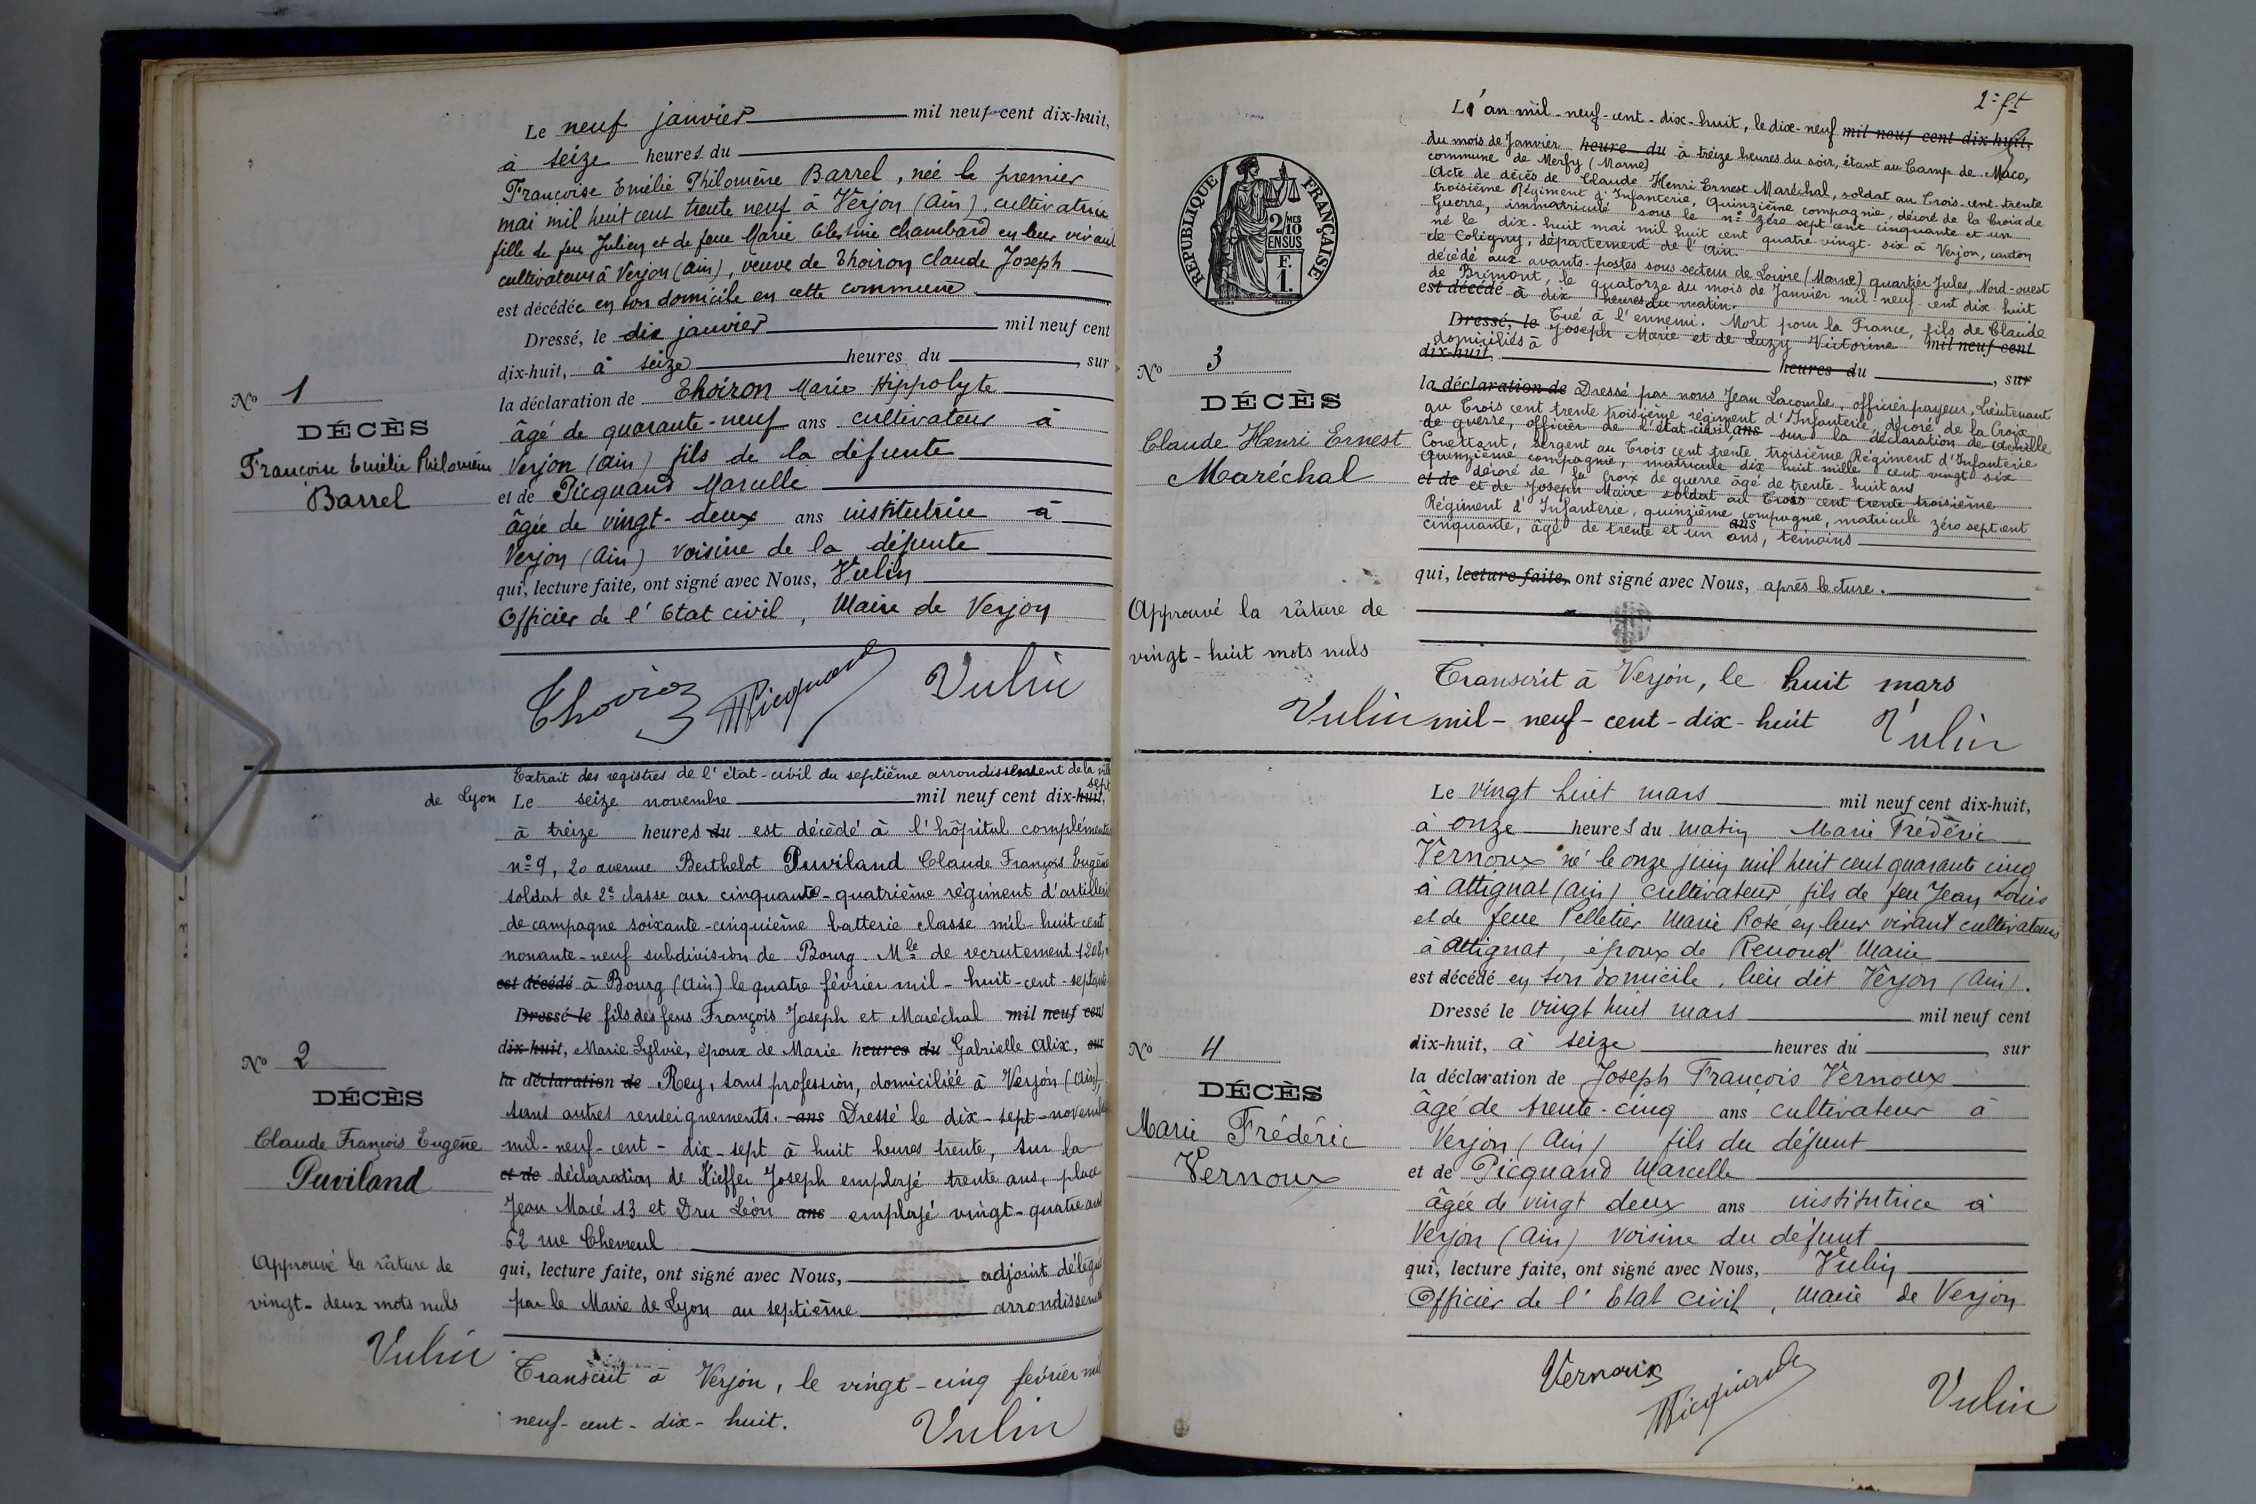 Le neuf janvier mil neuf cent dix-huit,
à seize heures du
Françoise Emélie Philomène Barrel, née le premier
mai mil huit cent trente neuf à Verjon (Ain), cultivatrice
fille de feu Julien et de feue Marie Célestine Chambard en leur vivant
cultivateurs à Verjon (Ain), veuve de Thoiron Claude Joseph
est décédée en son domicile en cette commune
Dressé, le dix janvier mil neuf cent
dix-huit, à seize heures du , sur
la déclaration de Thoiron Marie Hippolyte
âgé de quarante-neuf ans cultivateur à
Verjon (Ain) fils de la défunte
et de Picquand Marcelle
âgée de vingt-deux ans institutrice à
Verjon (Ain) voisine de la défunte
qui, lecture faite, ont signé avec Nous, Vulin
Officier de l'Etat civil, Maire de Verjon
Nº 1
DÉCÈS
Françoise Emélie Philomène
Barrel
Thoiron MPicquand Vulin
Extrait des registres de l'état-civil du septième arrondissement de la ville
de Lyon Le seize novembre mil neuf cent dix-huit, sept
à treize heures du est décédé à l'hôpital complémentaire
nº 9, 20 avenue Berthelot Puviland Claude François Eugène
soldat de 2e classe au cinquante-quatrième régiment d'artillerie
de campagne soixante-cinquième batterie classe mil-huit-cent
nonante-neuf subdivision de Bourg Mle de recrutement
est décédé à Bourg (Ain) le quatre février mil-huit-cent-septante
Dressé le fils des feus François Joseph et Maréchal mil neuf cent
dix-huit, Marie Sylvie, époux de Marie heures du Gabrielle Alix, sur
la déclaration de Rey, sans profession, domiciliée à Verjon (Ain),
sans autres renseignements. ans Dressé le dix-sept-novembre
mil-neuf-cent-dix-sept à huit heures trente, sur la
et de déclaration de Kieffer Joseph employé trente ans, place
Jean Macé 13 et Dru Léon ans employé vingt-quatre ans
62 rue Chevreul
qui, lecture faite, ont signé avec Nous, adjoint délégué
par le Maire de Lyon au septième arrondissement
Nº 2
DÉCÈS
Claude François Eugène
Puviland
Approuvé la râture de
vingt-deux mots nuls
Vulin
Transcrit à Verjon, le vingt-cinq février mil
neuf-cent-dix-huit. Vulin
2e ft
L'an mil-neuf-cent-dix-huit, le dix-neuf mil neuf cent dix-huit,
du mois de Janvier heure du à treize heures du soir, étant au Camp de Maco,
commune de Merfy (Marne)
Acte de décès de Claude Henri Ernest Maréchal, soldat au Trois-cent-trente
troisième Régiment d'Infanterie, Quinzième compagnie, décoré de la Croix de
Guerre, immatriculé sous le nº zéro sept cent cinquante et un
né le dix-huit mai mil huit cent quatre-vingt-six à Verjon, canton
de Coligny, département de l'Ain.
décédé aux avants-postes sous secteur de Loivre (Marne) quartier Jules, Nord-ouest
de Brimont, le quatorze du mois de Janvier mil neuf cent dix-huit
est décédé à dix heures du matin.
Dressé, le Tué à l'ennemi. Mort pour la France, fils de Claude
Joseph Marie et de Luzy Victorine mil neuf cent
domiciliés à
dix-huit, heures du , sur
la déclaration de Dressé par nous Jean Lacombe, officier payeur, Lieutenant
au Trois cent trente troisième régiment d'Infanterie, décoré de la Croix
de guerre, officier de l'état civil, ans sur la déclaration de Achille
Conettant, sergent au Trois cent trente troisième Régiment d'Infanterie
Quinzième compagnie, matricule dix huit mille cent vingt six
et de décoré de la Croix de guerre âgé de trente-huit ans
et de Joseph Maire soldat au Trois cent trente troisième
Régiment d'Infanterie, quinzième compagnie, matricule zéro sept cent
cinquante, âgé de trente et un ans ans, témoins
qui, lecture faite, ont signé avec Nous, après lecture.
RÉPUBLIQUE FRANÇAISE
2/10
MES
EN SUS
F.
1.
Nº 3
DÉCÈS
Claude Henri Ernest
Maréchal
Approuvé la râture de
vingt-huit mots nuls
Transcrit à Verjon, le huit mars
Vulin mil-neuf-cent-dix-huit Vulin
Le vingt huit mars mil neuf cent dix-huit,
à onze heures du matin Marie Frédéric
Vernoux né le onze juin mil huit cent quarante cinq
à Attignat (Ain) cultivateur, fils de feu Jean Louis
et de feue Pelletier Marie Rose en leur vivant cultivateurs
à Attignat, époux de Renoud Marie
est décédé en son domicile, lieu dit Verjon (Ain).
Dressé le vingt huit mars mil neuf cent
dix-huit, à seize heures du , sur
la déclaration de Joseph François Vernoux
âgé de trente-cinq ans cultivateur à
Verjon (Ain) fils du défunt
et de Picquand Marcelle
âgée de vingt deux ans institutrice à
Verjon (Ain) voisine du défunt
qui, lecture faite, ont signé avec Nous, Vulin
Officier de l'Etat civil, Maire de Verjon
Nº 4
DÉCÈS
Marie Frédéric
Vernoux
Vernoux MPicquand Vulin